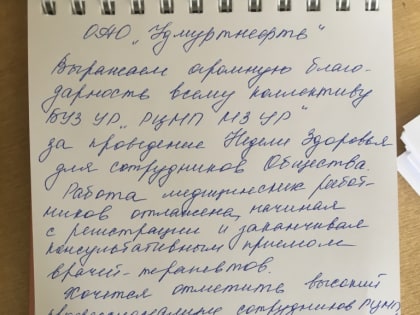 ОАО „Удмуртнефть"
Выражаем огромную благо-
дарность всему коллективу
БУЗ УР „РЦМП МЗ УР"
за проведение Недели Здоровья
для сотрудников Общества.
Работа медицинских работ-
ников отлажена, начиная
с регистрации и заканчивая
консультативным приемом
врачей-терапевтов.
Хочется отметить высокий
профессионализм сотрудников РЦМП